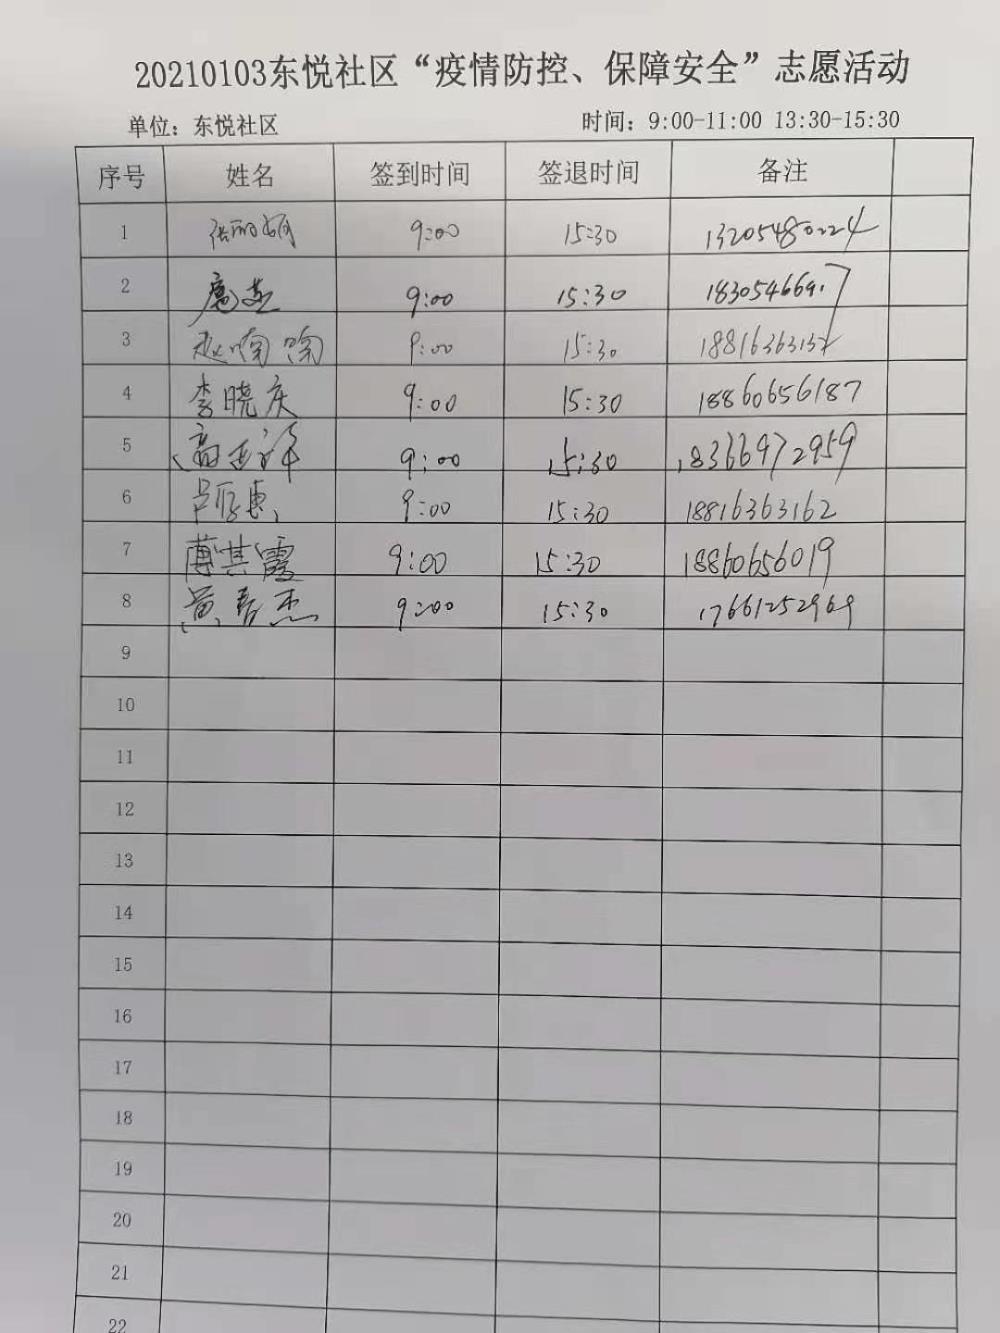 20210103东悦社区“疫情防控、保障安全”志愿活动
单位：东悦社区 时间：9:00-11:00 13:30-15:30
序号 姓名 签到时间 签退时间 备注
1 9:00 15:30 13205480224
2 9:00 15:30
3 9:00 15:30
4 李晓庆 9:00 15:30 18860656187
5 9:00 15:30 18366972959
6 9:00 15:30 18816363162
7 傅其霞 9:00 15:30 18860656019
8 黄春杰 9:00 15:30 17661252969
9
10
11
12
13
14
15
16
17
18
19
20
21
22